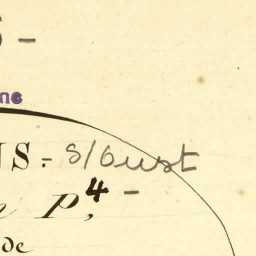 ne
IS.- S/Oust
P, 4 -
de